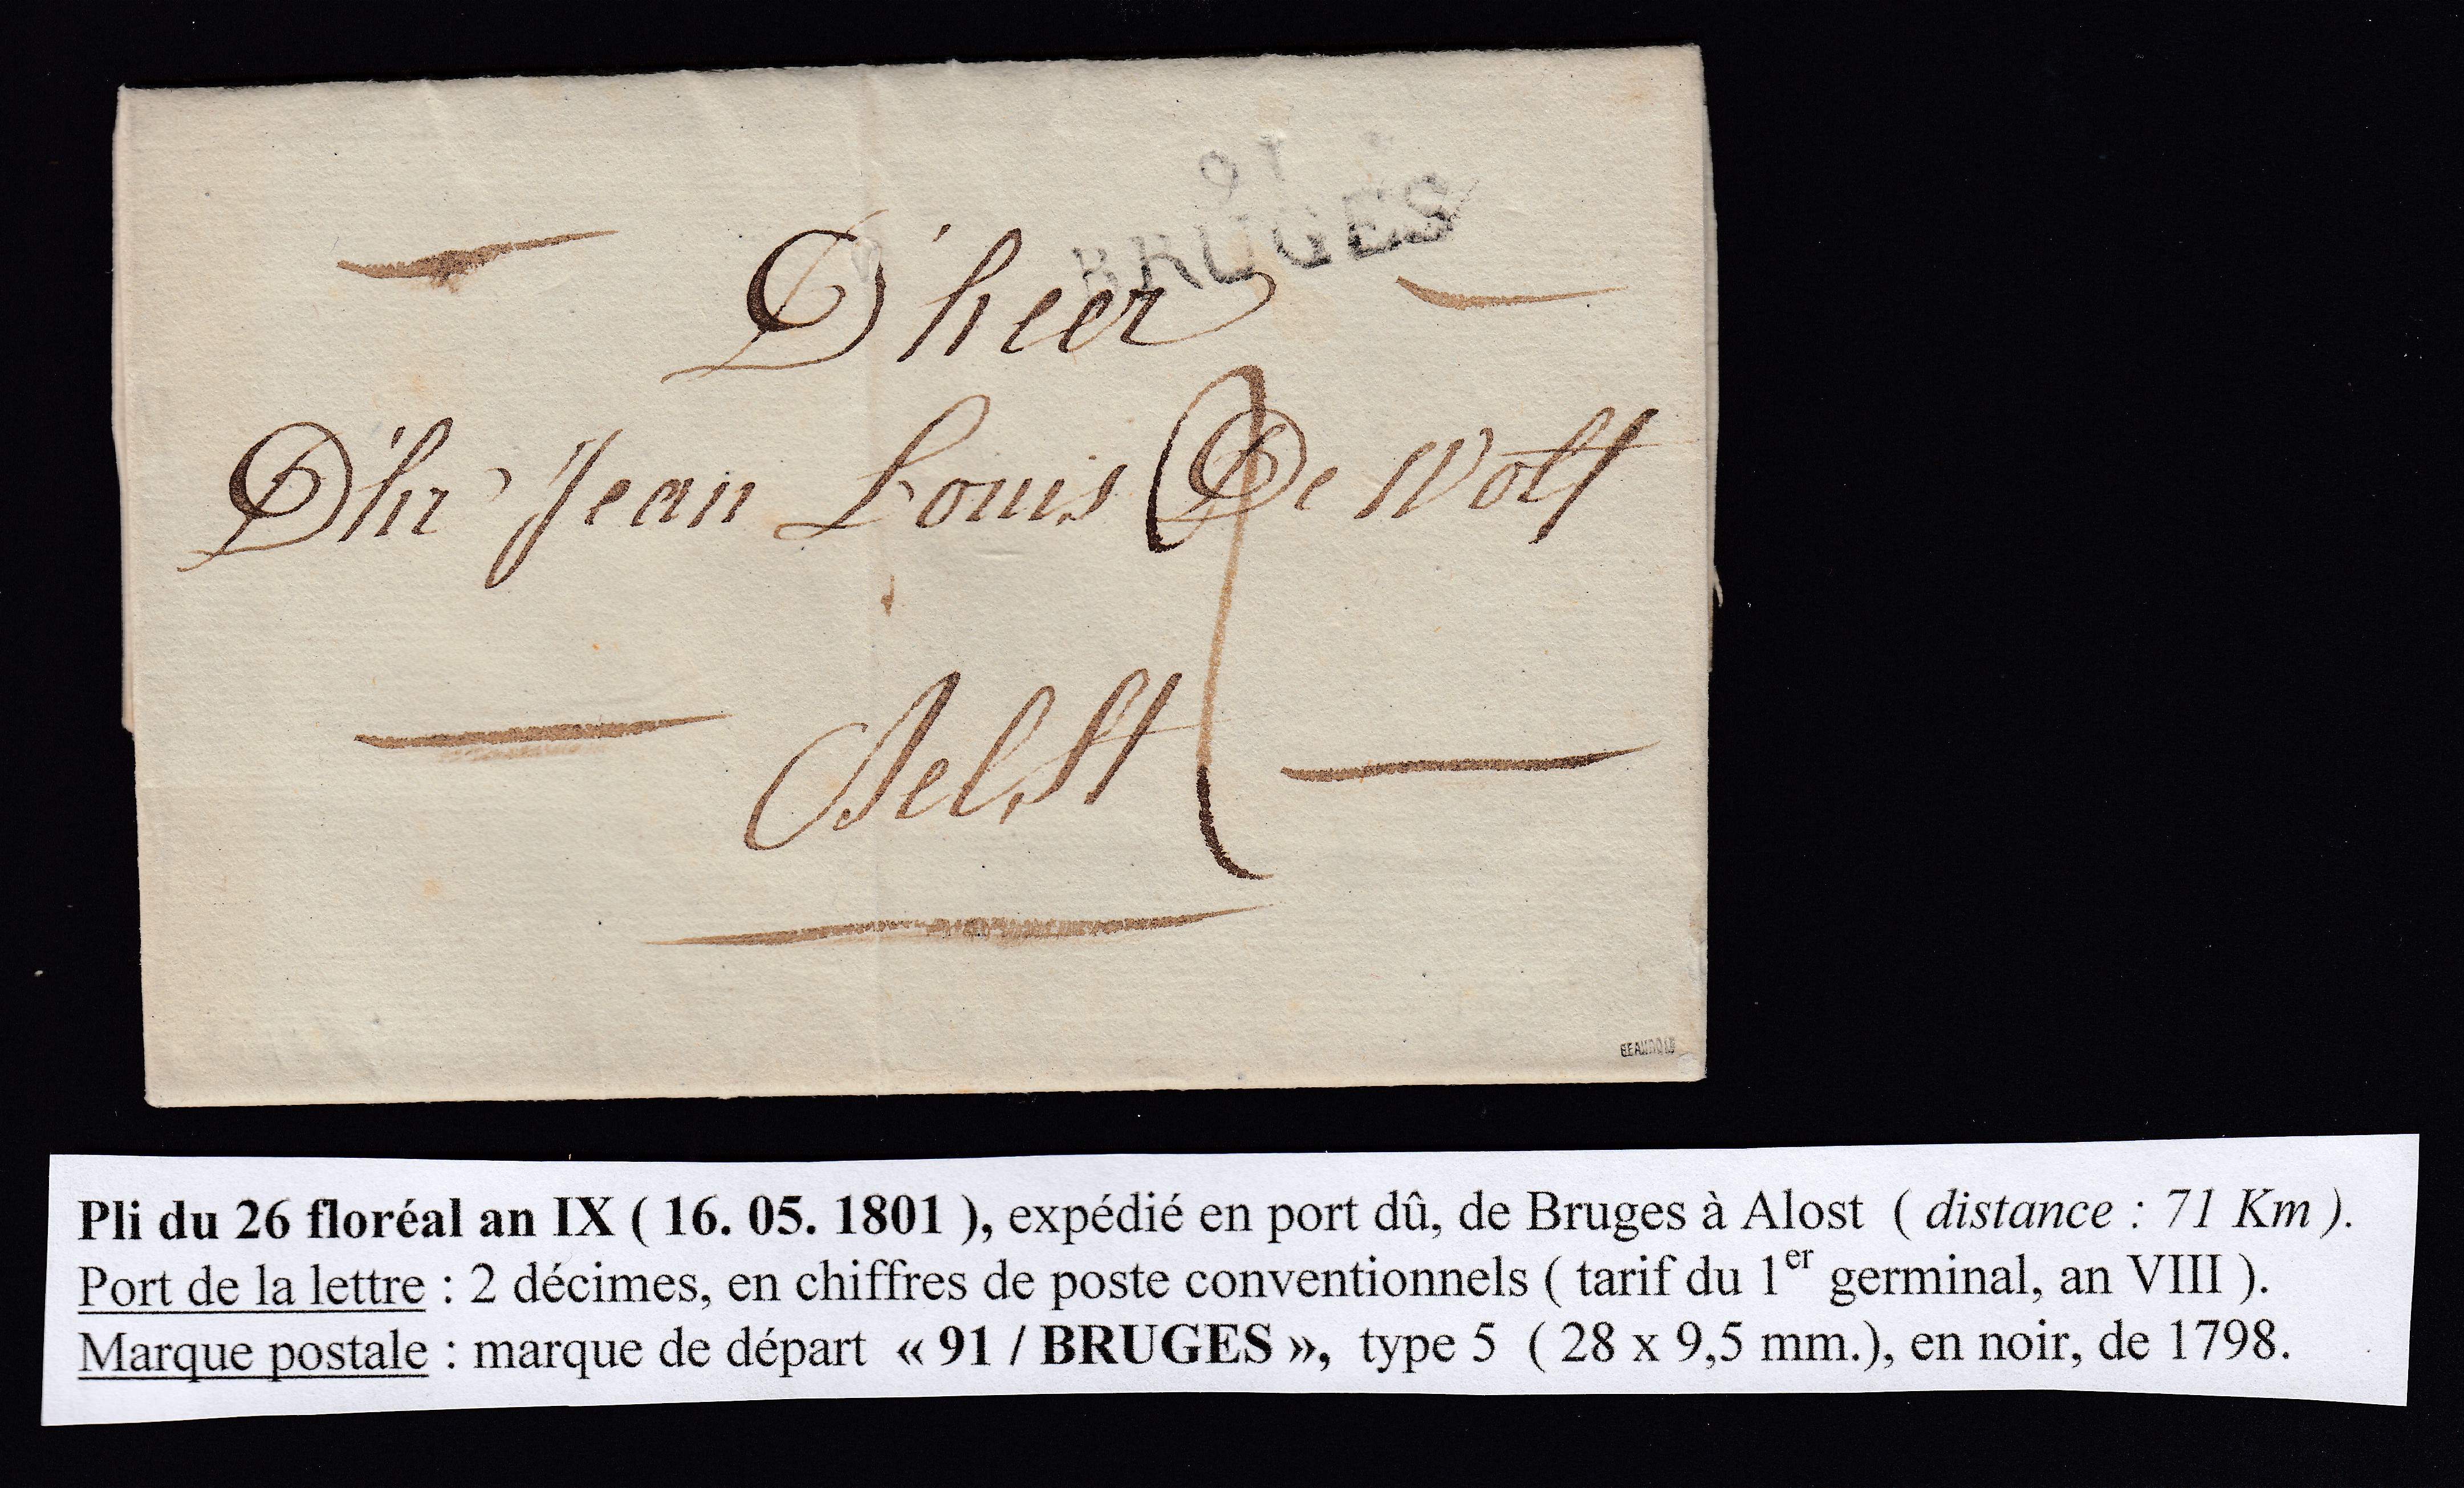 91
BRUGES
D'heer
D'hr Jean Louis De Wolf
2
Aelst
Pli du 26 floréal an IX ( 16. 05. 1801 ), expédié en port dû, de Bruges à Alost ( distance : 71 Km ).
Port de la lettre : 2 décimes, en chiffres de poste conventionnels ( tarif du 1er germinal, an VIII ).
Marque postale : marque de départ « 91 / BRUGES », type 5 ( 28 x 9,5 mm.), en noir, de 1798.